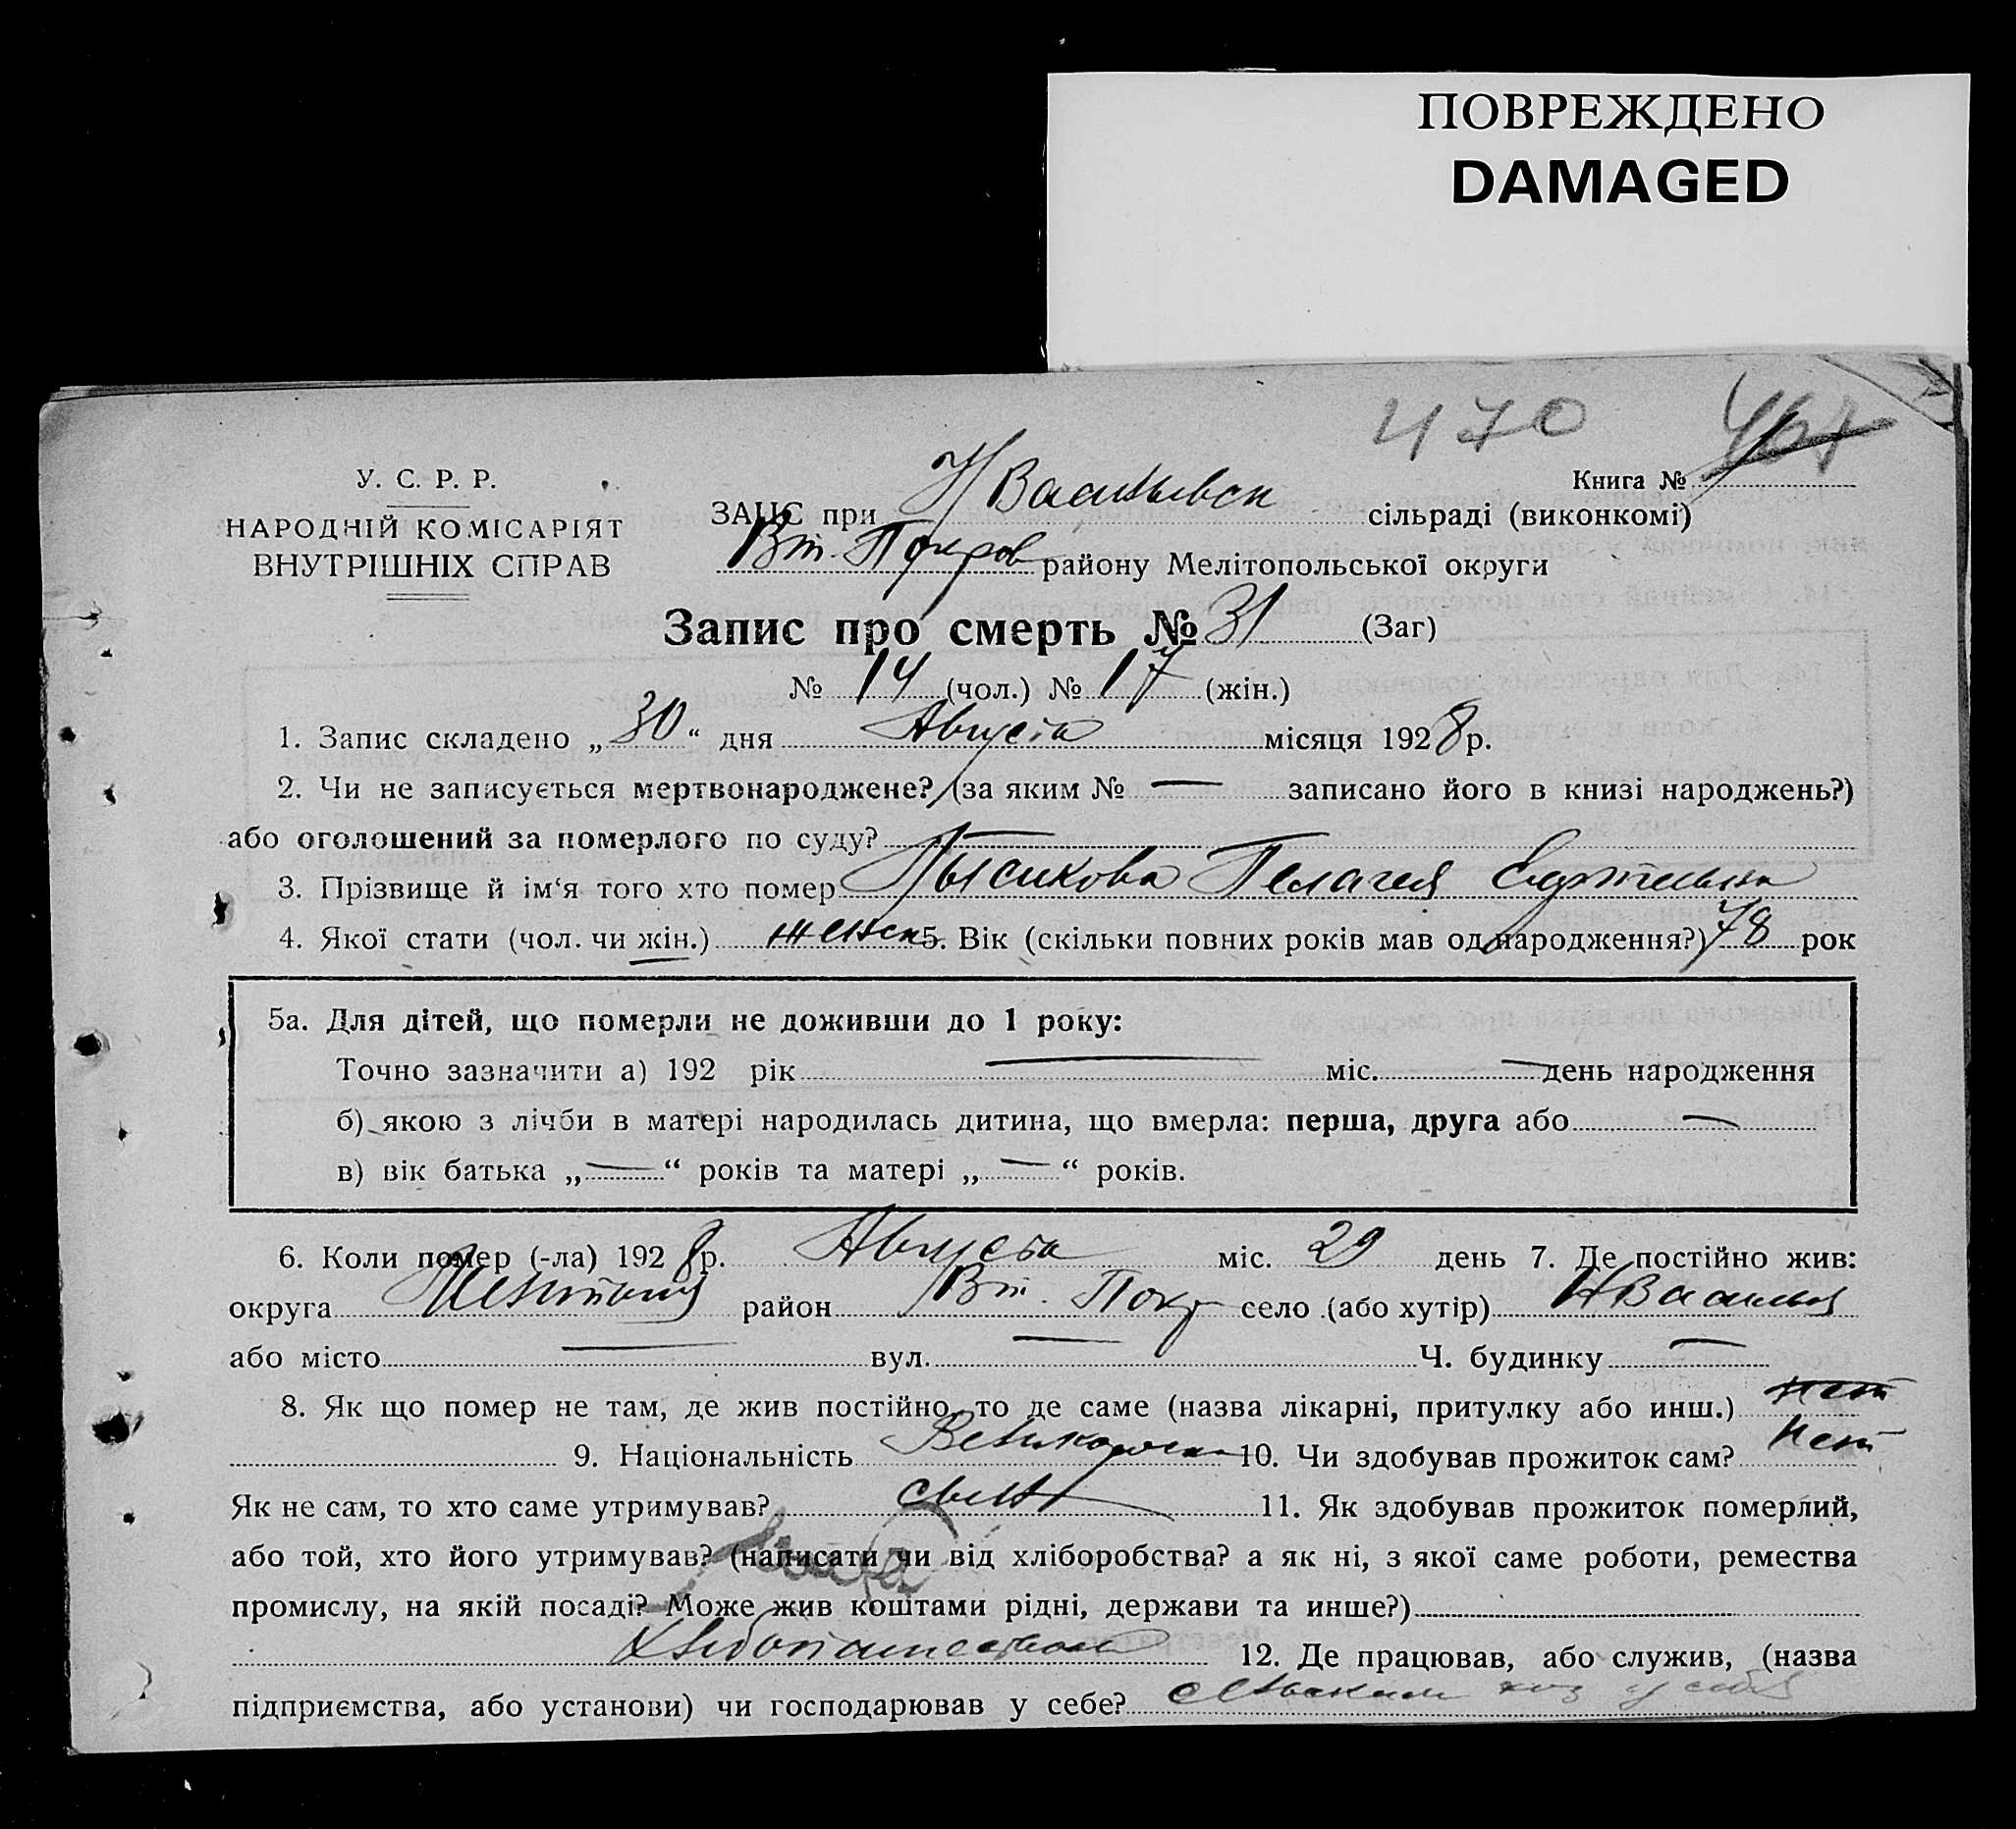 ПОВРЕЖДЕНО
DAMAGED
470 467
У. С. Р. Р.
НАРОДНІЙ КОМІСАРІЯТ
ВНУТРІШНІХ СПРАВ
Книга №
ЗАГС при Н Васильевск сільраді (виконкомі)
Вт. Покров району Мелітопольської округи
Запис про смерть № 31 (Заг)
№ 14 (чол.) № 17 (жін.)
1. Запис складено „30“ дня Августа місяця 1928 р.
2. Чи не записується мертвонароджене? (за яким № — записано його в книзі народжень?)
або оголошений за померлого по суду? —
3. Прізвище й ім‘я того хто помер Лысикова Пелагея
4. Якої стати (чол. чи жін.) женск 5. Вік (скільки повних років мав од народження?) 78 рок
5а. Для дітей, що померли не доживши до 1 року:
Точно зазначити а) 192 рік — міс. — день народження
б) якою з лічби в матері народилась дитина, що вмерла: перша, друга або —
в) вік батька „—“ років та матері „—“ років.
6. Коли помер (-ла) 1928 р. Августа міс. 29 день 7. Де постійно жив:
округа район Вт. Покр село (або хутір) Н Василья
або місто — вул. — Ч. будинку —
8. Як що помер не там, де жив постійно, то де саме (назва лікарні, притулку або инш.) нет
9. Національність 10. Чи здобував прожиток сам? Нет
Як не сам, то хто саме утримував? сын 11. Як здобував прожиток померлий,
або той, хто його утримував? (написати чи від хліборобства? а як ні, з якої саме роботи, ремества
промислу, на якій посаді? Може жив коштами рідні, держави та инше?)
Хлебопашеством 12. Де працював, або служив, (назва
підприємства, або установи) чи господарював у себе? сельским хоз у себя